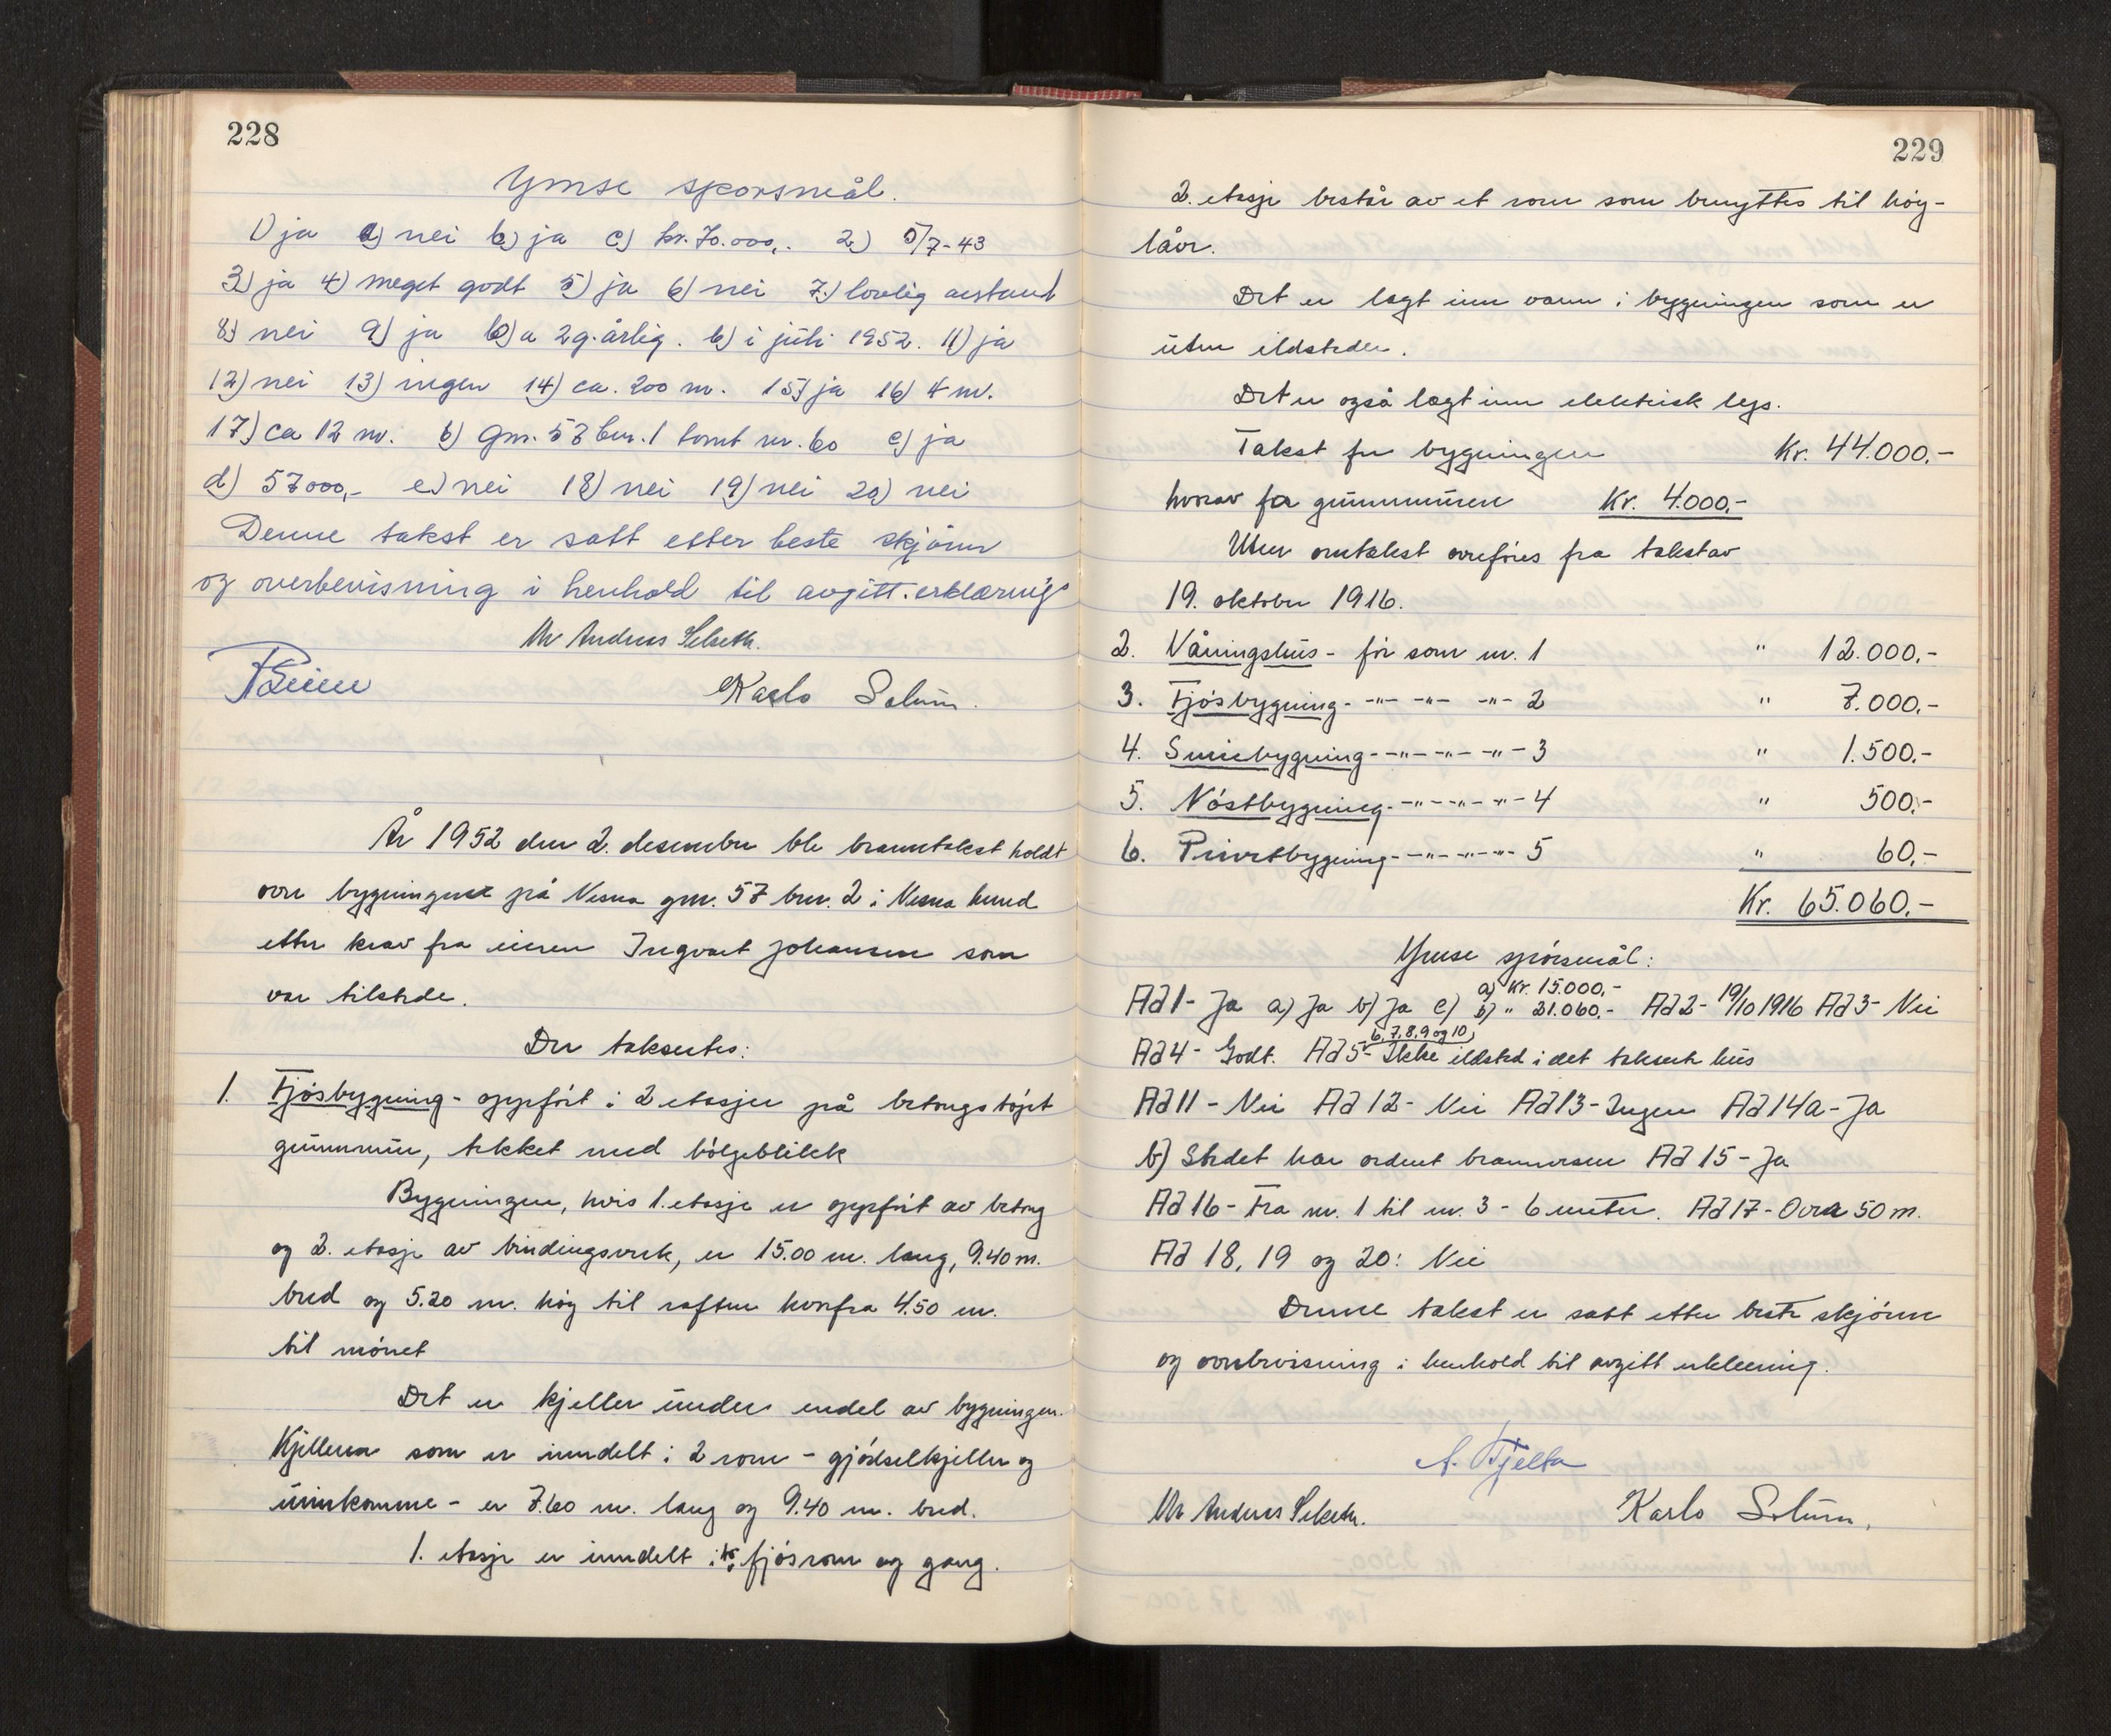 228
Ymse sporsmål.
1) ja a) nei b) ja c) kr. 70.000,. 2) 5/7-43
3) ja 4) meget godt 5) ja 6) nei 7.) lovlig avstand
8) nei 9) ja 10) a 2 g. årlig. b) i juli 1952. 11) ja
12) nei 13) ingen 14) ca. 200 m. 15) ja 16) 4 m.
17) ca 12 m. b) Gnr. 57 bnr. 1 tomt nr. 60 c) ja
d) 57000,- e) nei 18) nei 19) nei 20) nei
Denne takst er satt etter beste skjönn
og overbevisning i henhold til avgitt erklæring
Andreas Selseth.
Karlo Solum.
År 1952 den 2. desember ble branntakst holdt
over bygningene på Nesna gnr. 57 bnr. 2 i Nesna herred
etter krav fra eieren Ingvart Johansen som
var tilstede.
Der taksertes:
1. Fjösbygning - oppfört i 2 etasjer på betongstöpt
grunnmur, tekket med bölgeblikk
Bygningen, hvis 1. etasje er oppfört av betong
og 2. etasje av bindingsverk, er 15.00 m. lang, 9.40 m.
bred og 5.20 m. höy til raften hvorfra 4.50 m.
til mönet
Det er kjeller under endel av bygningen.
Kjelleren som er inndelt i 2 rom - gjödselkjeller og
urinkomme - er 7.60 m. lang og 9.40 m. bred.
1. etasje er inndelt i to fjösrom og gang.
229
2. etasje består av et rom som benyttes til höy-
låve.
Det er lagt inn vann i bygningen som er
uten ildsteder.
Det er også lagt inn elektrisk lys.
Takst for bygningen Kr. 44.000.-
hvorav for grunnmuren Kr. 4.000.-
Uten omtakst overföres fra takst av
19. oktober 1916.
2. Våningshus - för som nr. 1 " 12.000.-
3. Fjösbygning - -"- -"- -"- 2 " 7.000.-
4. Smiebygning - -"- -"- -"- 3 " 1.500.-
5. Nöstbygning - -"- -"- -"- 4 " 500.-
6. Privetbygning - -"- -"- -"- 5 " 60.-
Kr. 65.060.-
Ymse spörsmål:
a) Kr. 15.000.-
Ad 1 - Ja a) Ja b) Ja c) b) " 21.060.- Ad 2 - 19/10 1916 Ad 3 - Nei
6, 7, 8, 9 og 10)
Ad 4 - Godt. Ad 5 - Ikke ildsted i det takserte hus
Ad 11 - Nei Ad 12 - Nei Ad 13 - Ingen Ad 14 a - Ja
b) Stedet har ordnet brannvesen Ad 15 - Ja
Ad 16 - Fra nr. 1 til nr. 3 - 6 meter. Ad 17 - Over 50 m.
Ad 18, 19 og 20: Nei
Denne takst er satt etter beste skjönn
og overbevisning i henhold til avgitt erklæring.
A. Fjelta
Andreas Selseth.
Karlo Solum.